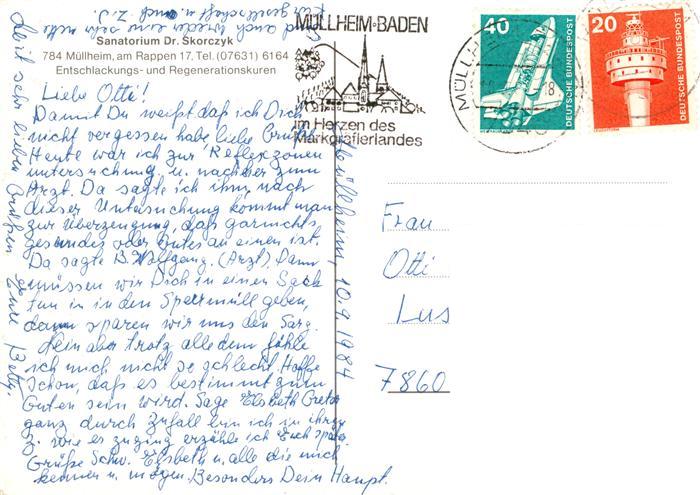 Sanatorium Dr. Skorczyk
784 Müllheim, am Rappen 17, Tel. (07631) 6164
Entschlackungs- und Regenerationskuren
MÜLLHEIM·BADEN
im Herzen des
Markgräflerlandes
40
DEUTSCHE BUNDESPOST
20
DEUTSCHE BUNDESPOST
Liebe Otti!
Damit Du weißt daß ich Dich
nicht vergessen habe, liebe Grüße
Heute war ich zur Reflexzonen
untersuchung u. nachher zum
Arzt. Da sagte ich ihm, nach
dieser Untersuchung kommt man
zur Überzeugung, daß garnichts
gesundes oder Gutes an einem ist.
Da sagte B. Wolfgang. (Arzt). Dann
müssen wir Dich in einen Sack
tun in den Sperrmüll geben,
dann sparen wir uns den Sarg.
Nein aber trotz alledem fühle
ich mich nicht so schlecht. Hoffe
schon, daß es bestimmt zum
Guten sein wird. Sage Elsbeth
ganz durch Zufall bin ich in ihrem
Z. wie es zuging erzähle ich Euch später
Grüße Schw. Elsbeth u. alle die mich
kennen u. mögen. Besonders Dein
Müllheim, 10.9.1984
Mit sehr lieben Grüßen Eure Betty
Frau
Otti
Lus
7860